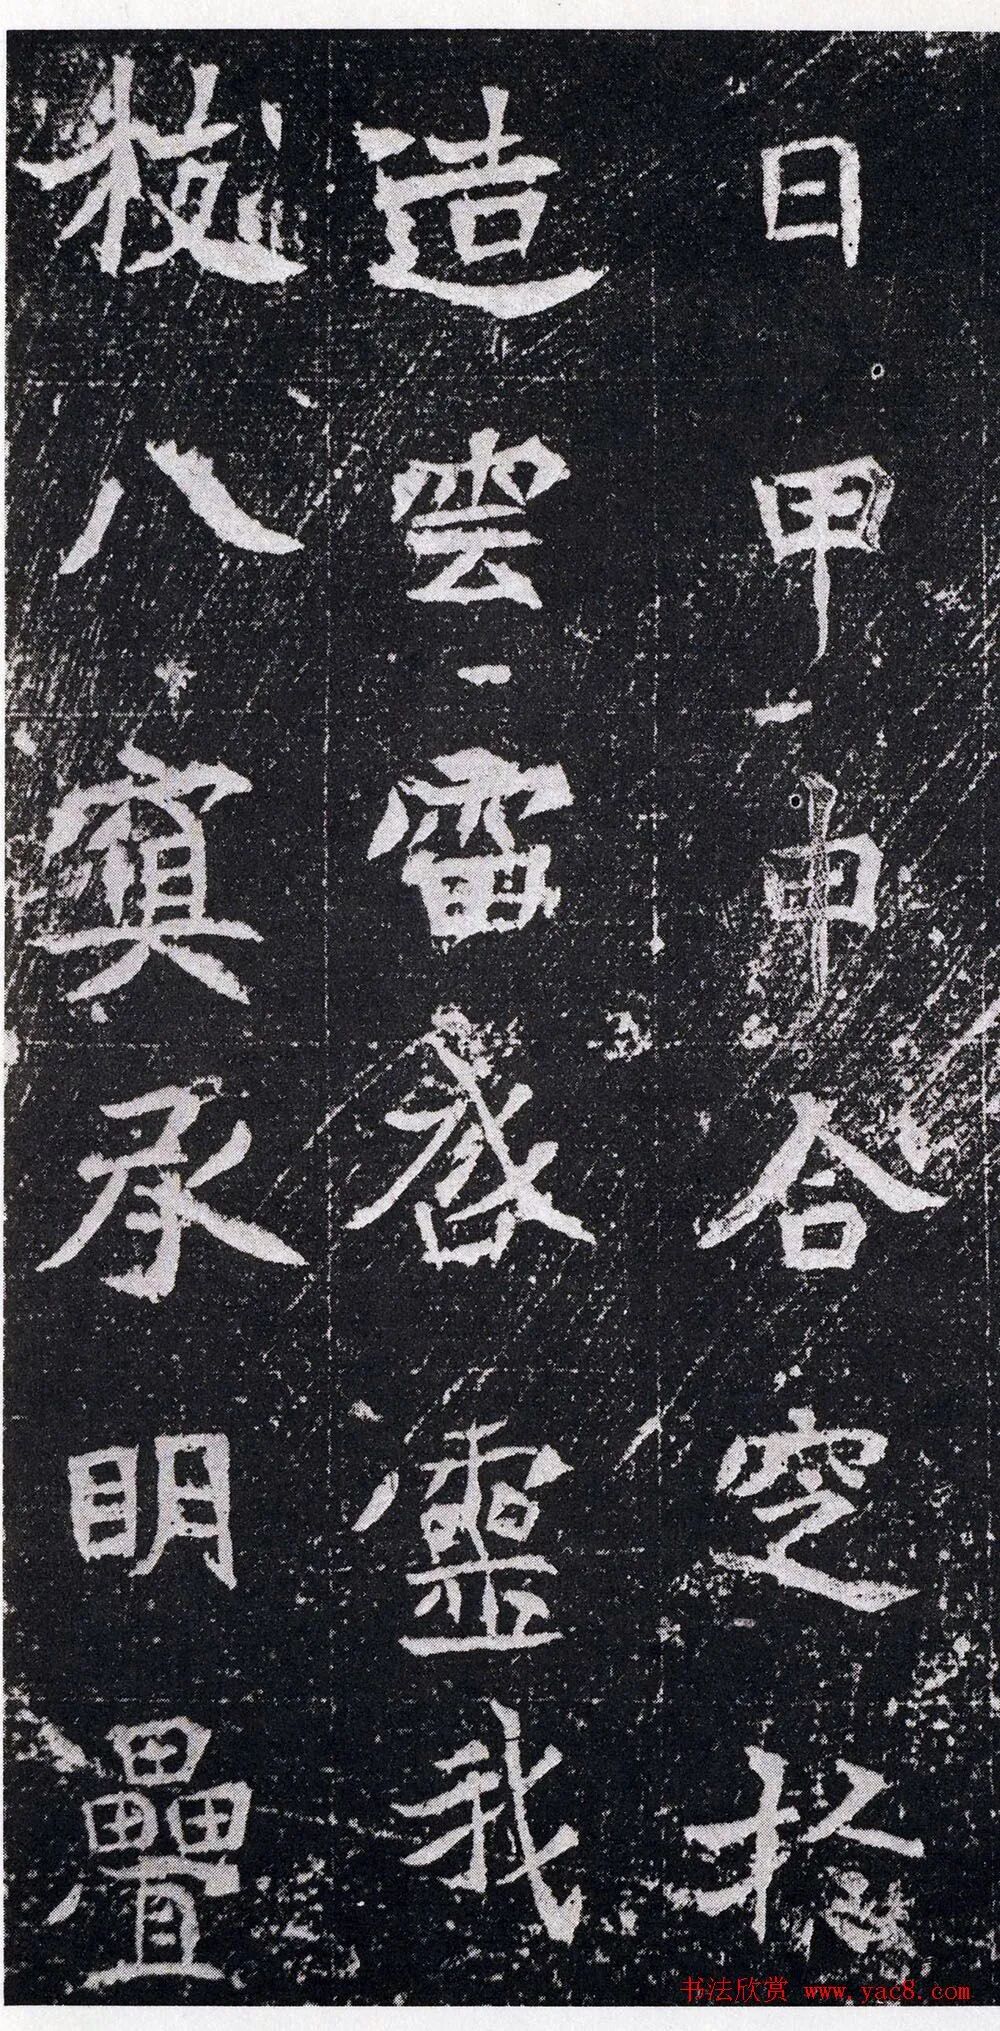 日甲申合空格
造雲雷啓靈我
八寅承明疊
书法欣赏 www.yac8.com